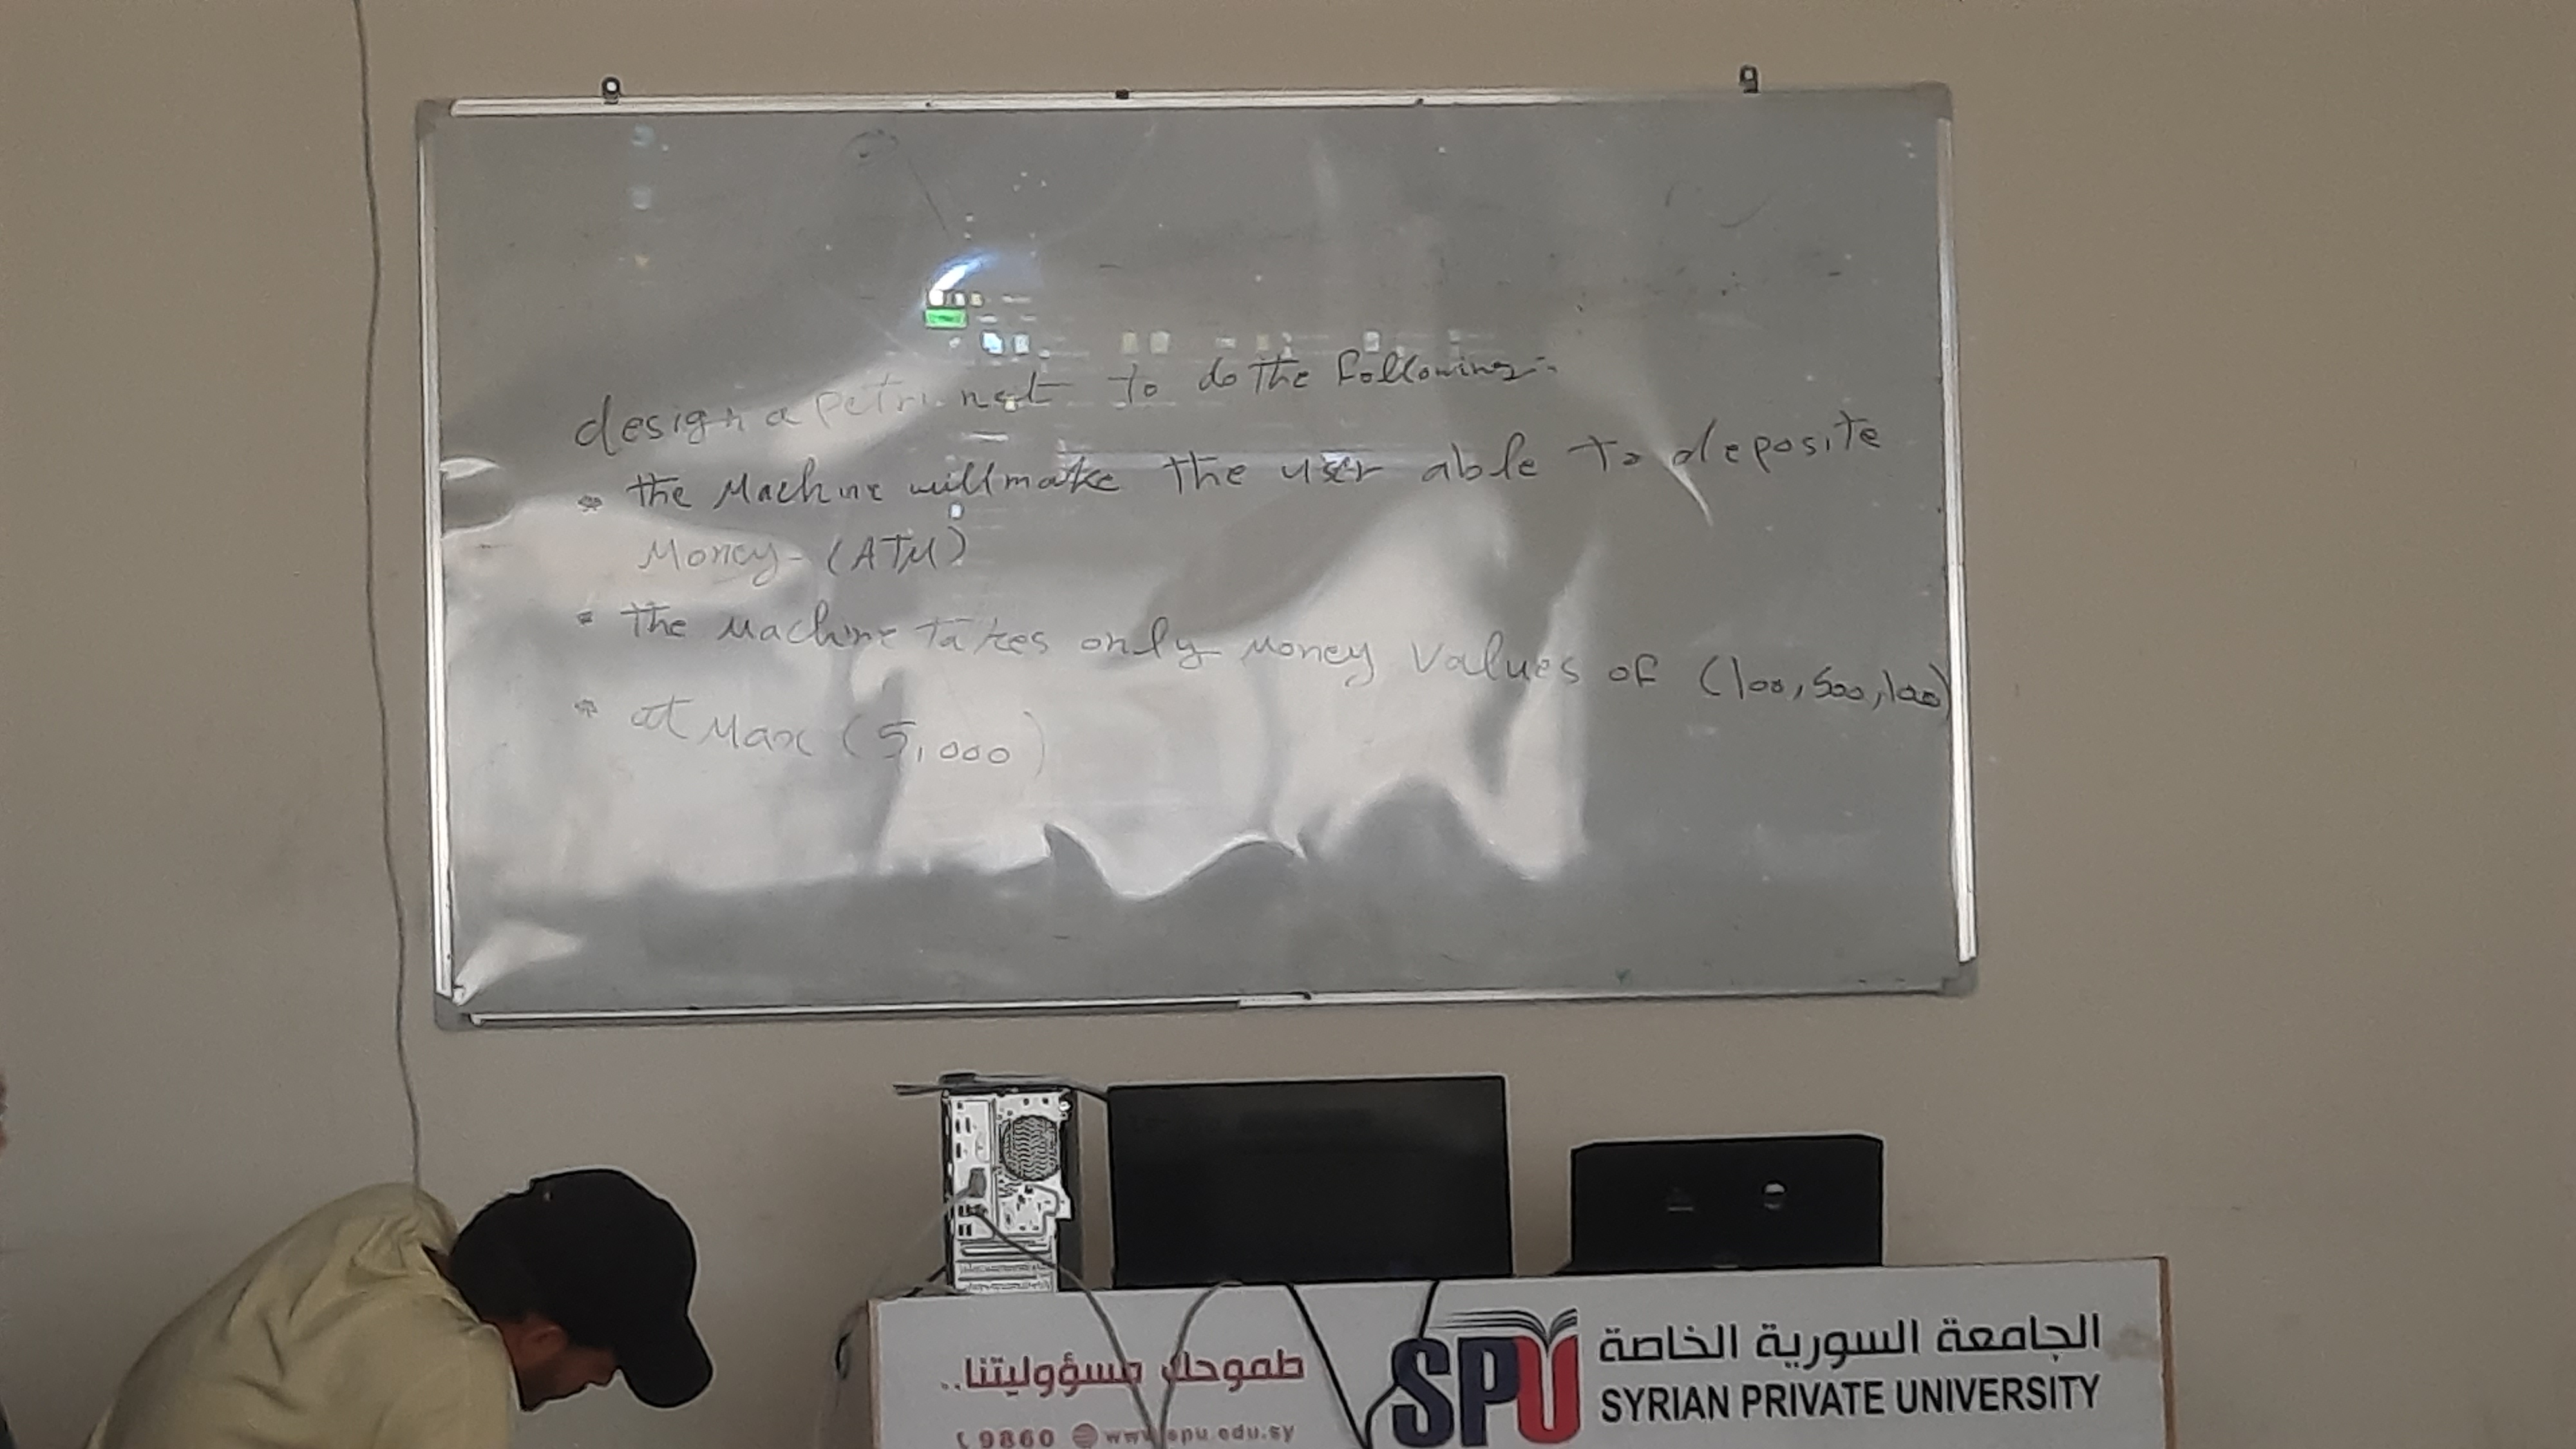 design a petri net to do the following:
* the Machine will make the user able to deposite
Money (ATM)
* the Machine takes only money values of (100, 500, 100)
* at Max (5,000)
طموحك مسؤوليتنا..
9860 www.spu.edu.sy
SPU
الجامعة السورية الخاصة
SYRIAN PRIVATE UNIVERSITY